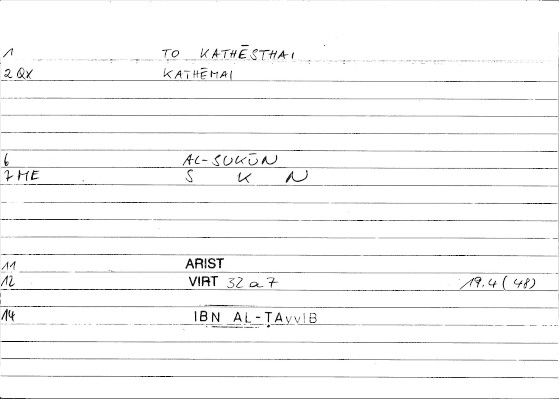 1 TO KATHĒSTHAI
2 QX KATHĒMAI
6 AL-SUKŪN
7 ME S K N
11 ARIST
12 VIRT 32 a 7 19.4 (48)
14 IBN AL-ṬAYYIB